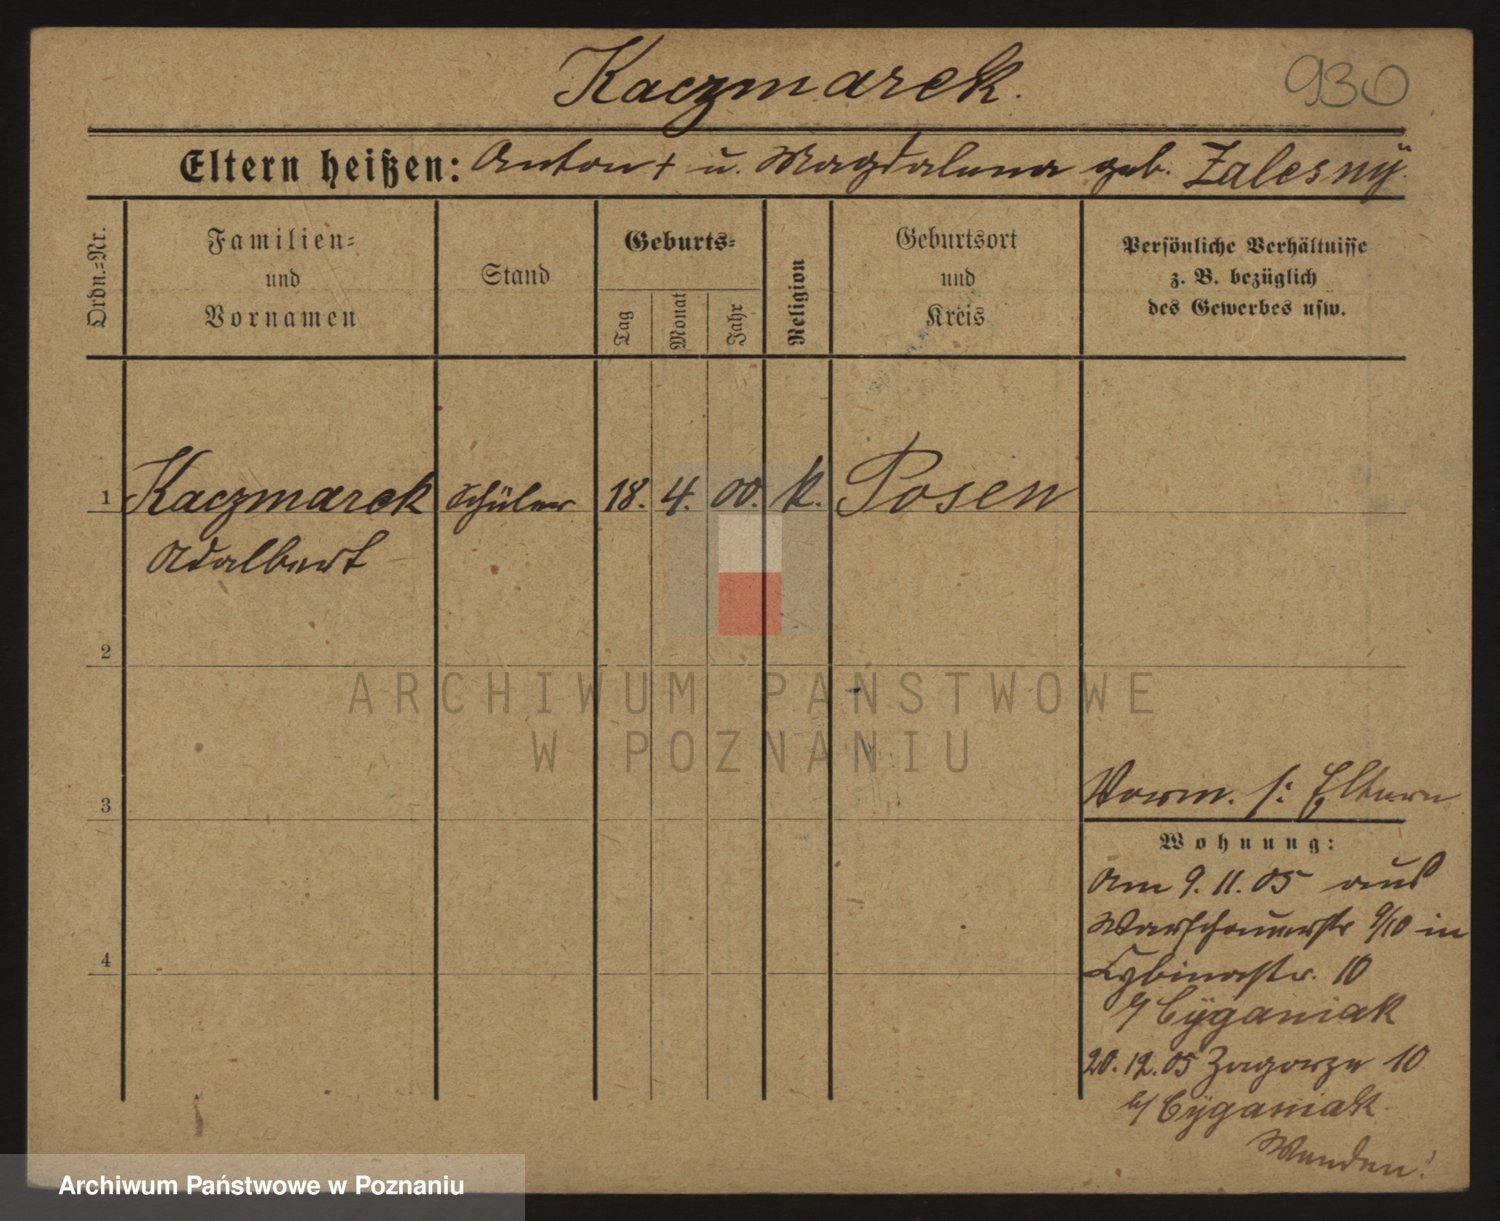 Kaczmarek.
930
Eltern heißen: Anton † u. Magdalena geb. Zalesnÿ.
Ordn.=Nr.
Familien=
und
Vornamen
Stand
Geburts=
Tag
Monat
Jahr
Religion
Geburtsort
und
Kreis
Persönliche Verhältnisse
z. B. bezüglich
des Gewerbes usw.
1 Kaczmarek Schüler 18. 4. 00. k. Posen
Adalbert
2
3
4
ARCHIWUM PAŃSTWOWE
W POZNANIU
Vorm. s: Eltern
Wohnung:
Am 9. 11. 05 aus
Warschauerstr 9/10 in
Cybinastr. 10
b/ Cÿganiak
20. 12. 05 Zagorze 10
b/ Cÿganiak
Wenden!
Archiwum Państwowe w Poznaniu